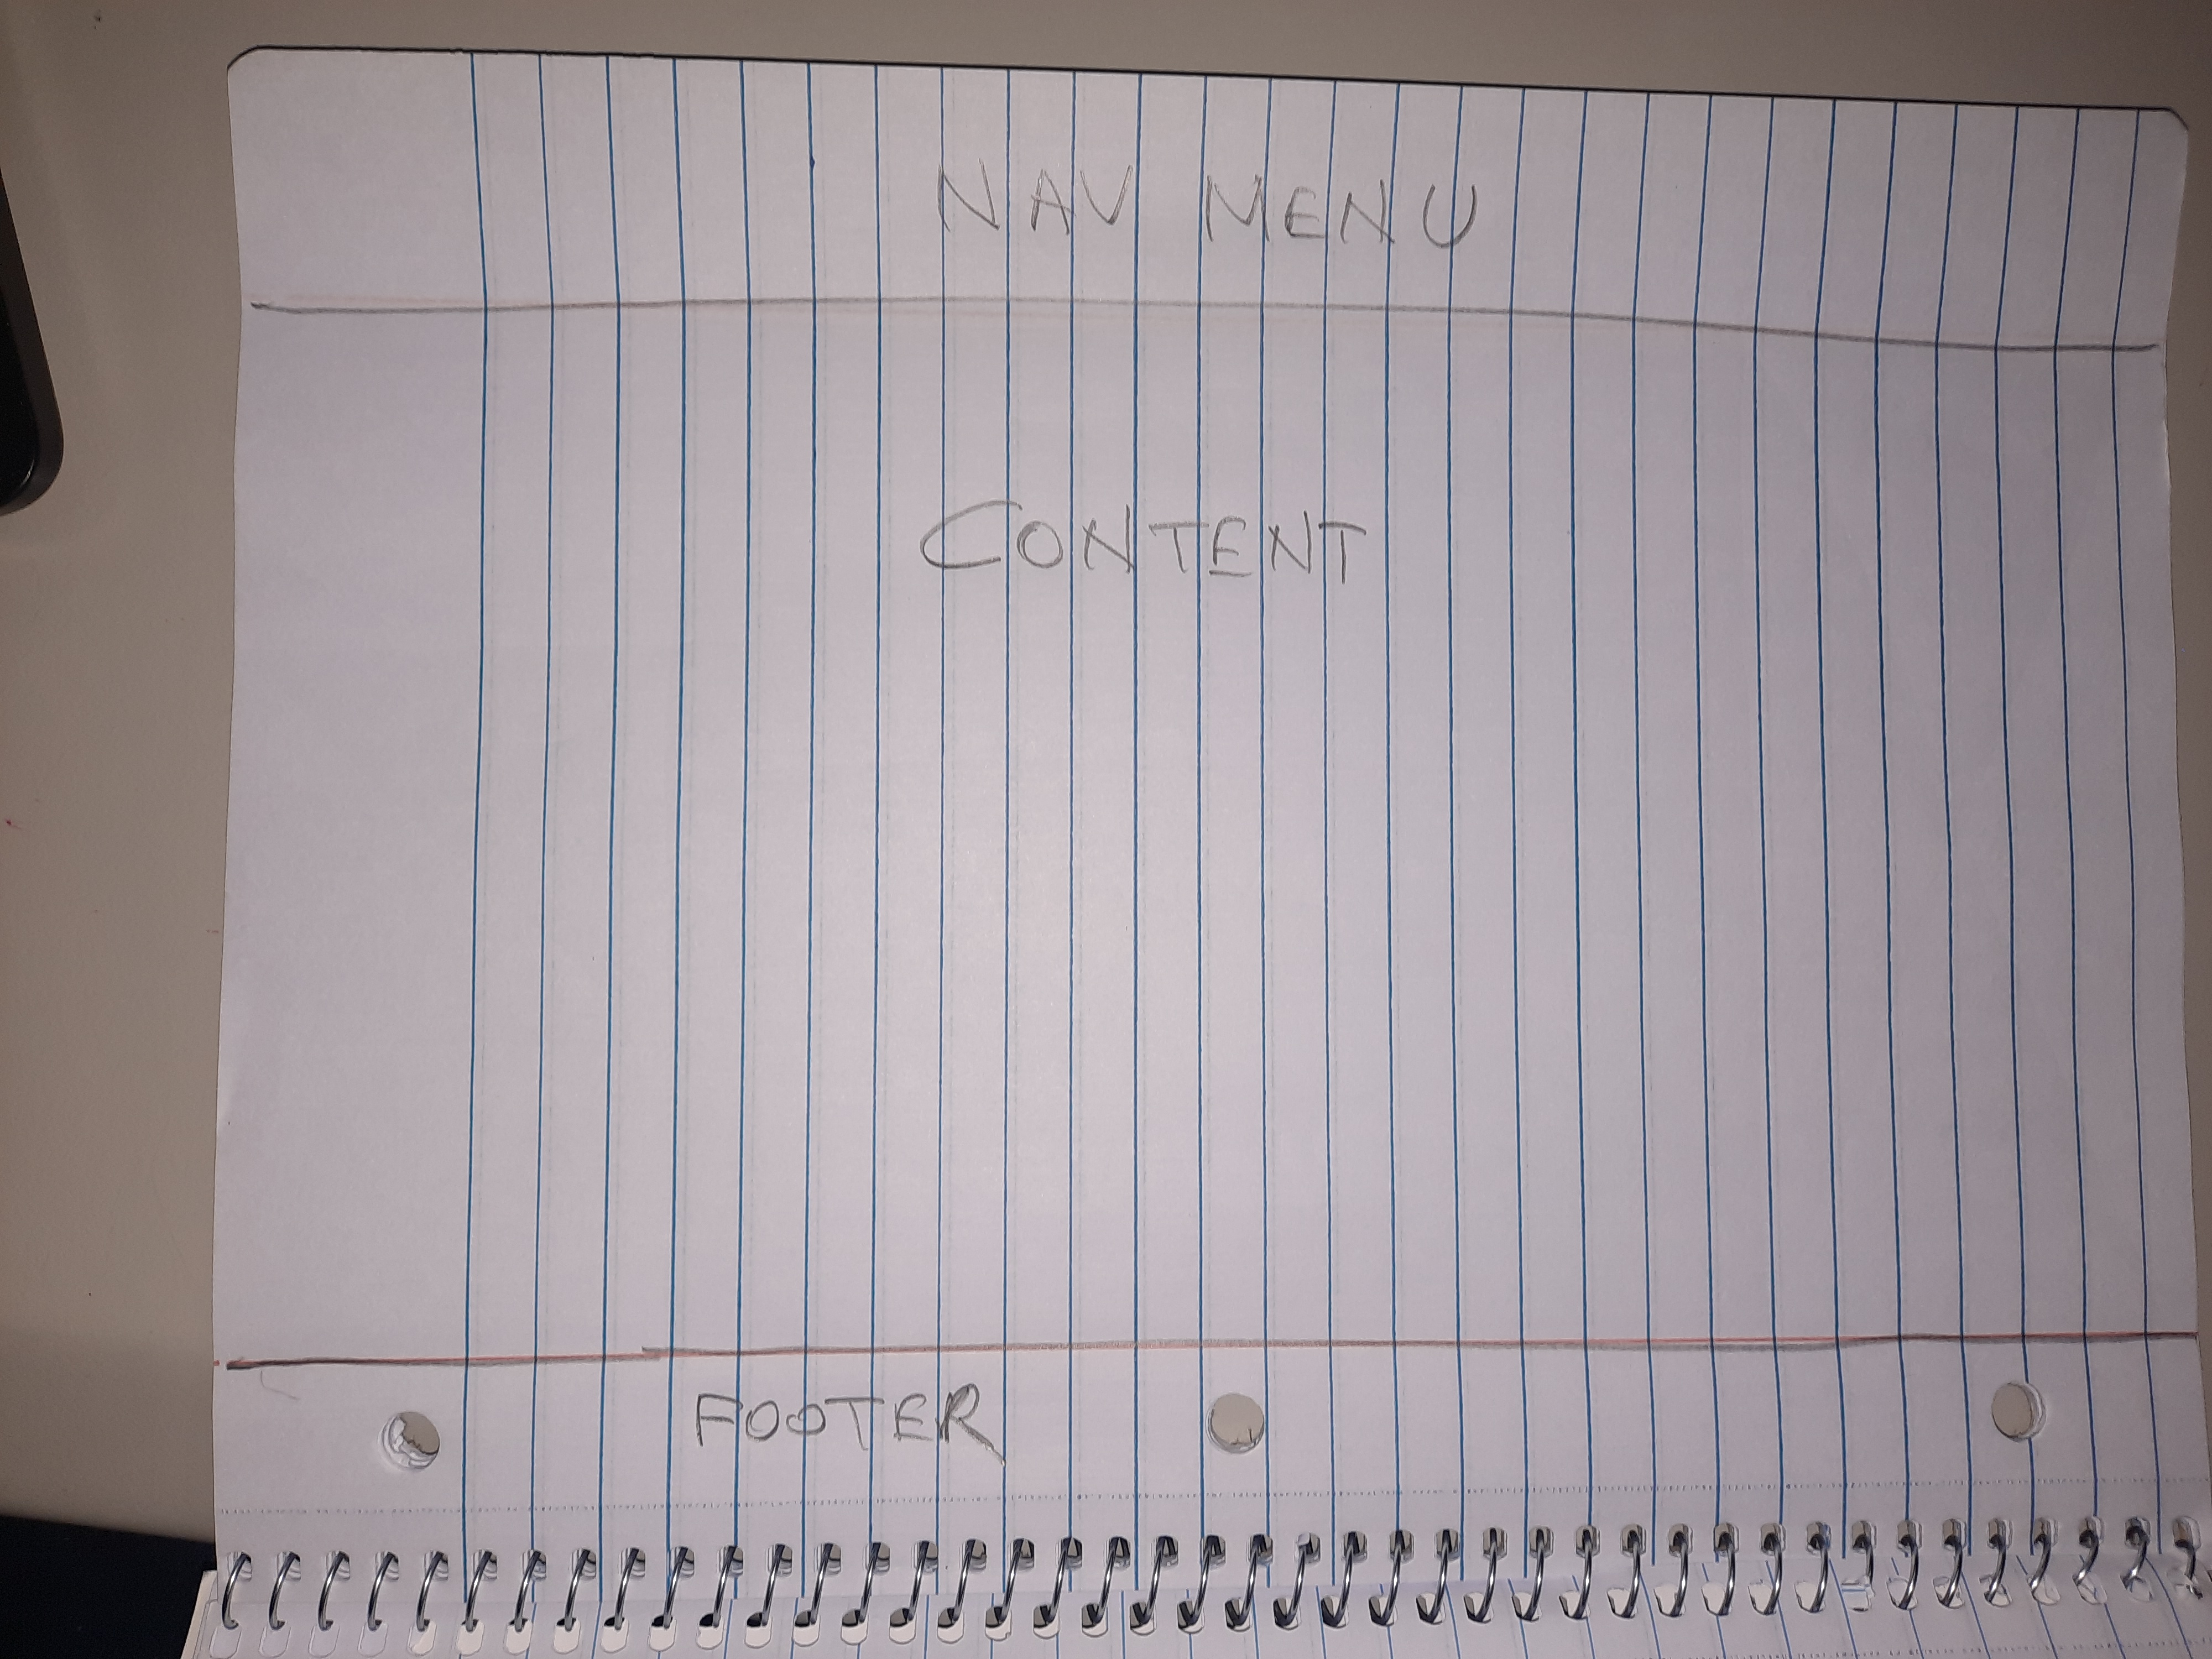 NAV MENU
CONTENT
FOOTER